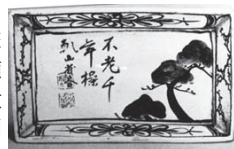 不老千
年操
乾山省